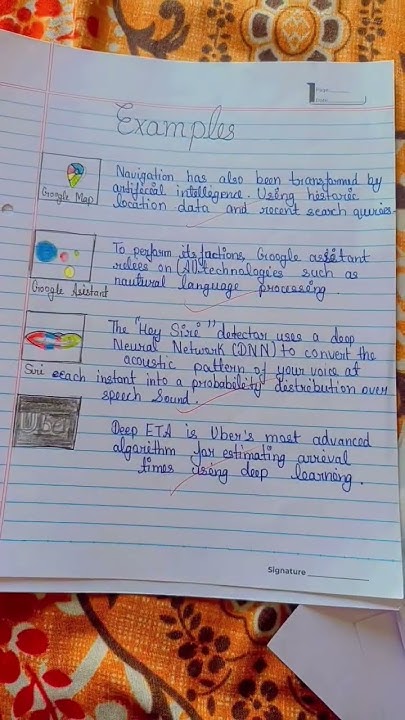 Page
Date
Examples
Navigation has also been transformed by
artificial intelligence. Using historic
Google Map
location data and recent search queries.
To perform its factions, Google assistant
relees on (AI) technologies such as
nautural language processing.
Google Asistant
The "Hey Siri" detector uses a deep
Neural Network (DNN) to convert the
acoustic pattern of your voice at
Siri each instant into a probability distribution over
speech Sound.
Uber
Deep ETA is Uber's most advanced
algorithm for estimating arrival
times using deep learning.
Signature